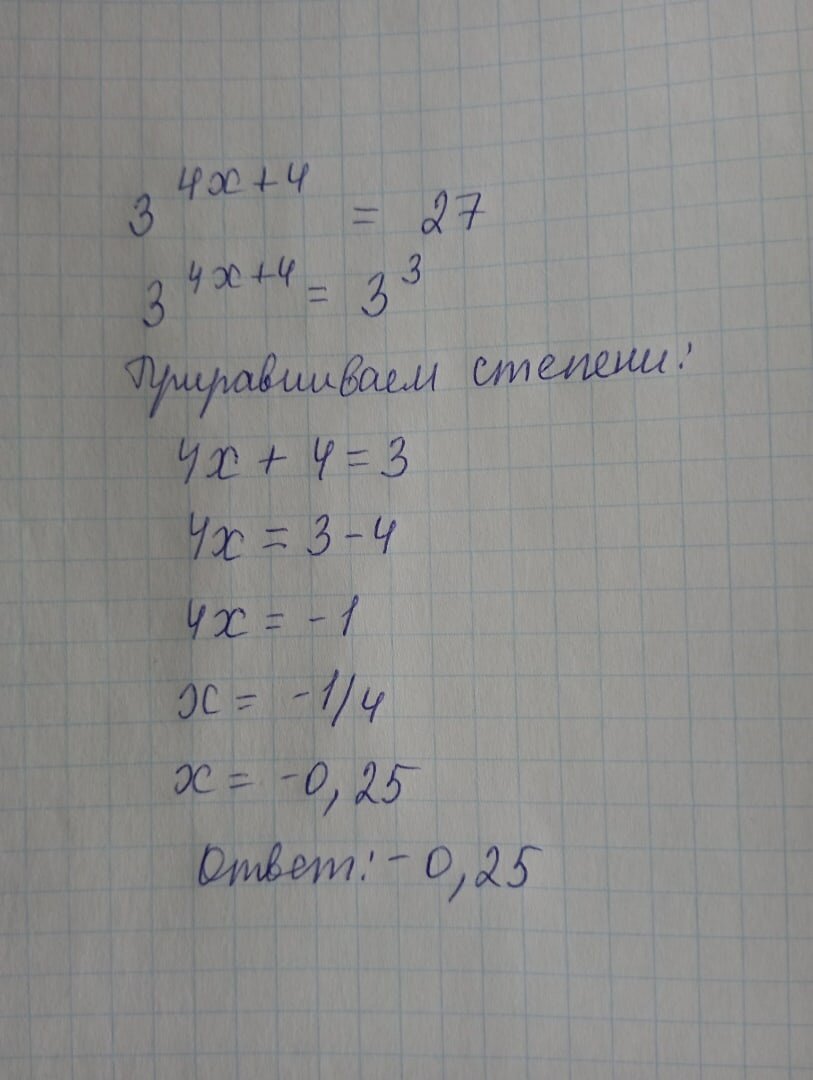 3^{4x+4} = 27
3^{4x+4} = 3^3
Приравниваем степени:
4x + 4 = 3
4x = 3 - 4
4x = -1
x = -1/4
x = -0,25
Ответ: -0,25